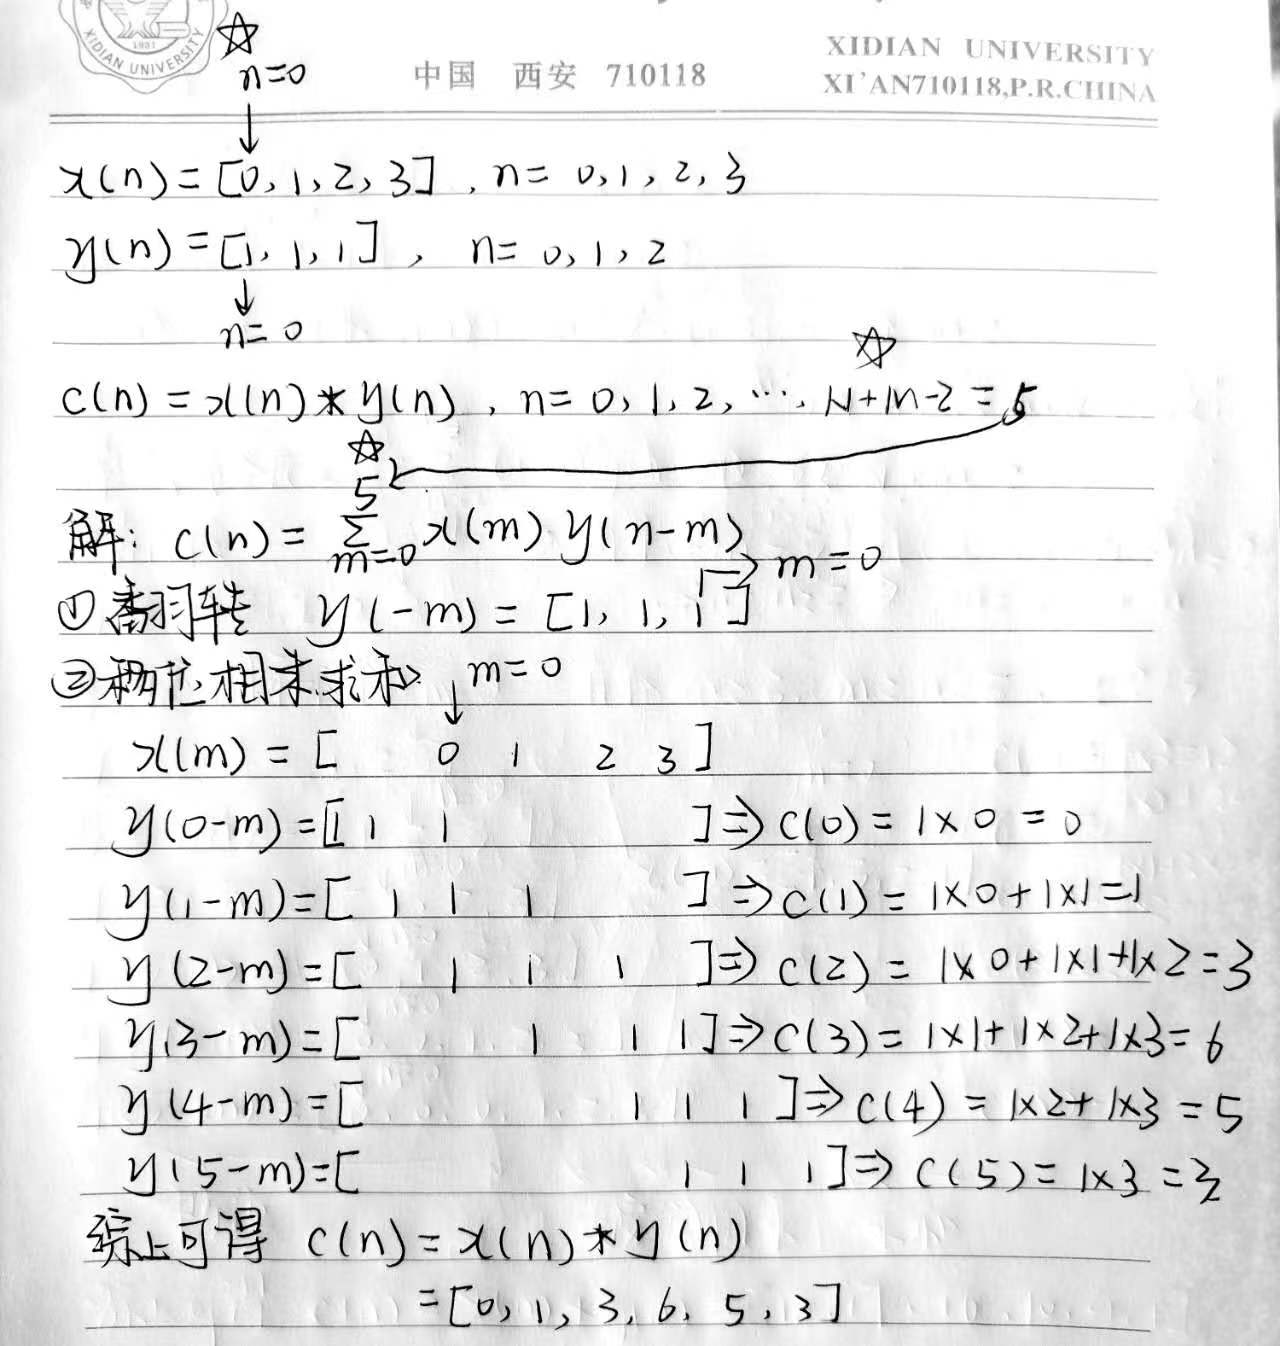 1931
XIDIAN UNIVERSITY
中国 西安 710118
XIDIAN UNIVERSITY
XI'AN710118,P.R.CHINA
☆
n=0
↓
x(n) = [0, 1, 2, 3] , n= 0, 1, 2, 3
y(n) = [1, 1, 1] , n= 0, 1, 2
↓
n=0
☆
c(n) = x(n) * y(n) , n= 0, 1, 2, ..., N+M-2 = 5
☆
解: c(n) = Σ_{m=0}^{5} x(m) y(n-m)
→ m=0
① 翻转 y(-m) = [1, 1, 1]
② 移位相乘求和 ↓ m=0
x(m) = [ 0 1 2 3 ]
y(0-m) = [1 1 1 ] ⇒ c(0) = 1×0 = 0
y(1-m) = [ 1 1 1 ] ⇒ c(1) = 1×0+1×1=1
y(2-m) = [ 1 1 1 ] ⇒ c(2) = 1×0+1×1+1×2=3
y(3-m) = [ 1 1 1] ⇒ c(3) = 1×1+1×2+1×3=6
y(4-m) = [ 1 1 1 ] ⇒ c(4) = 1×2+1×3 =5
y(5-m) = [ 1 1 1] ⇒ c(5) = 1×3 =3
综上可得 c(n) = x(n) * y(n)
= [0, 1, 3, 6, 5, 3]